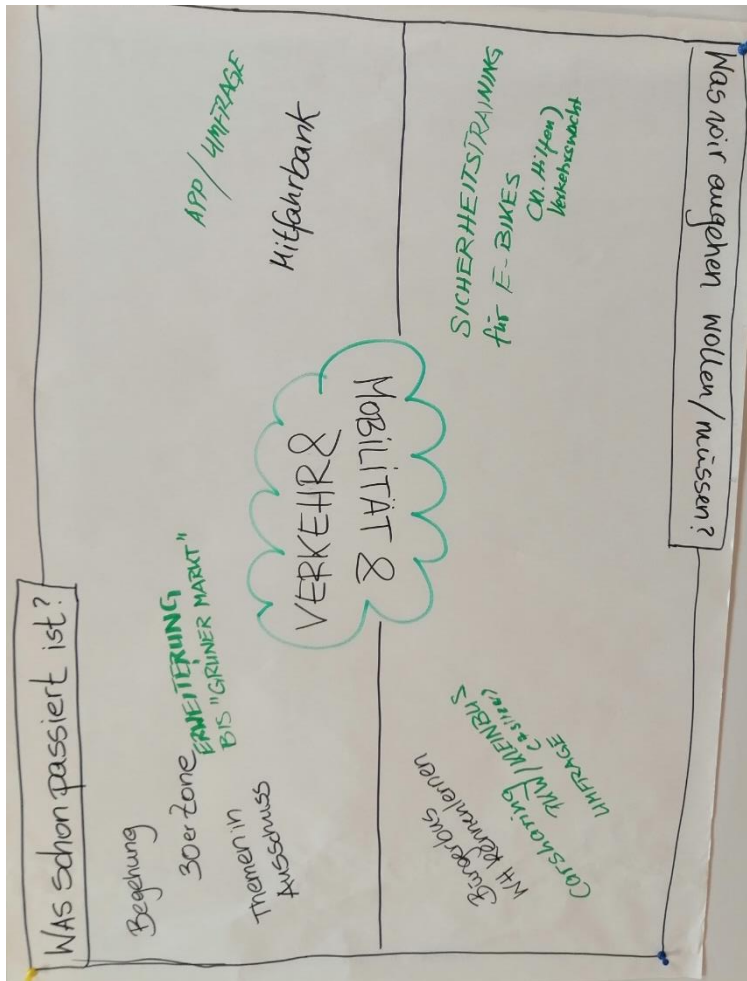 WAS schon passiert ist?
Begehung
30er Zone
ERWEITERUNG
BIS "GRÜNER MARKT"
Themen in
Ausschuss
APP / UMFRAGE
Mitfahrbank
VERKEHR &
MOBILITÄT &
Bürgerbus
WH kennenlernen
Carsharing
PKW / KLEINBUS
UMFRAGE
SICHERHEITSTRAINING
für E-BIKES
Verkehrswacht
Was wir angehen wollen/müssen?